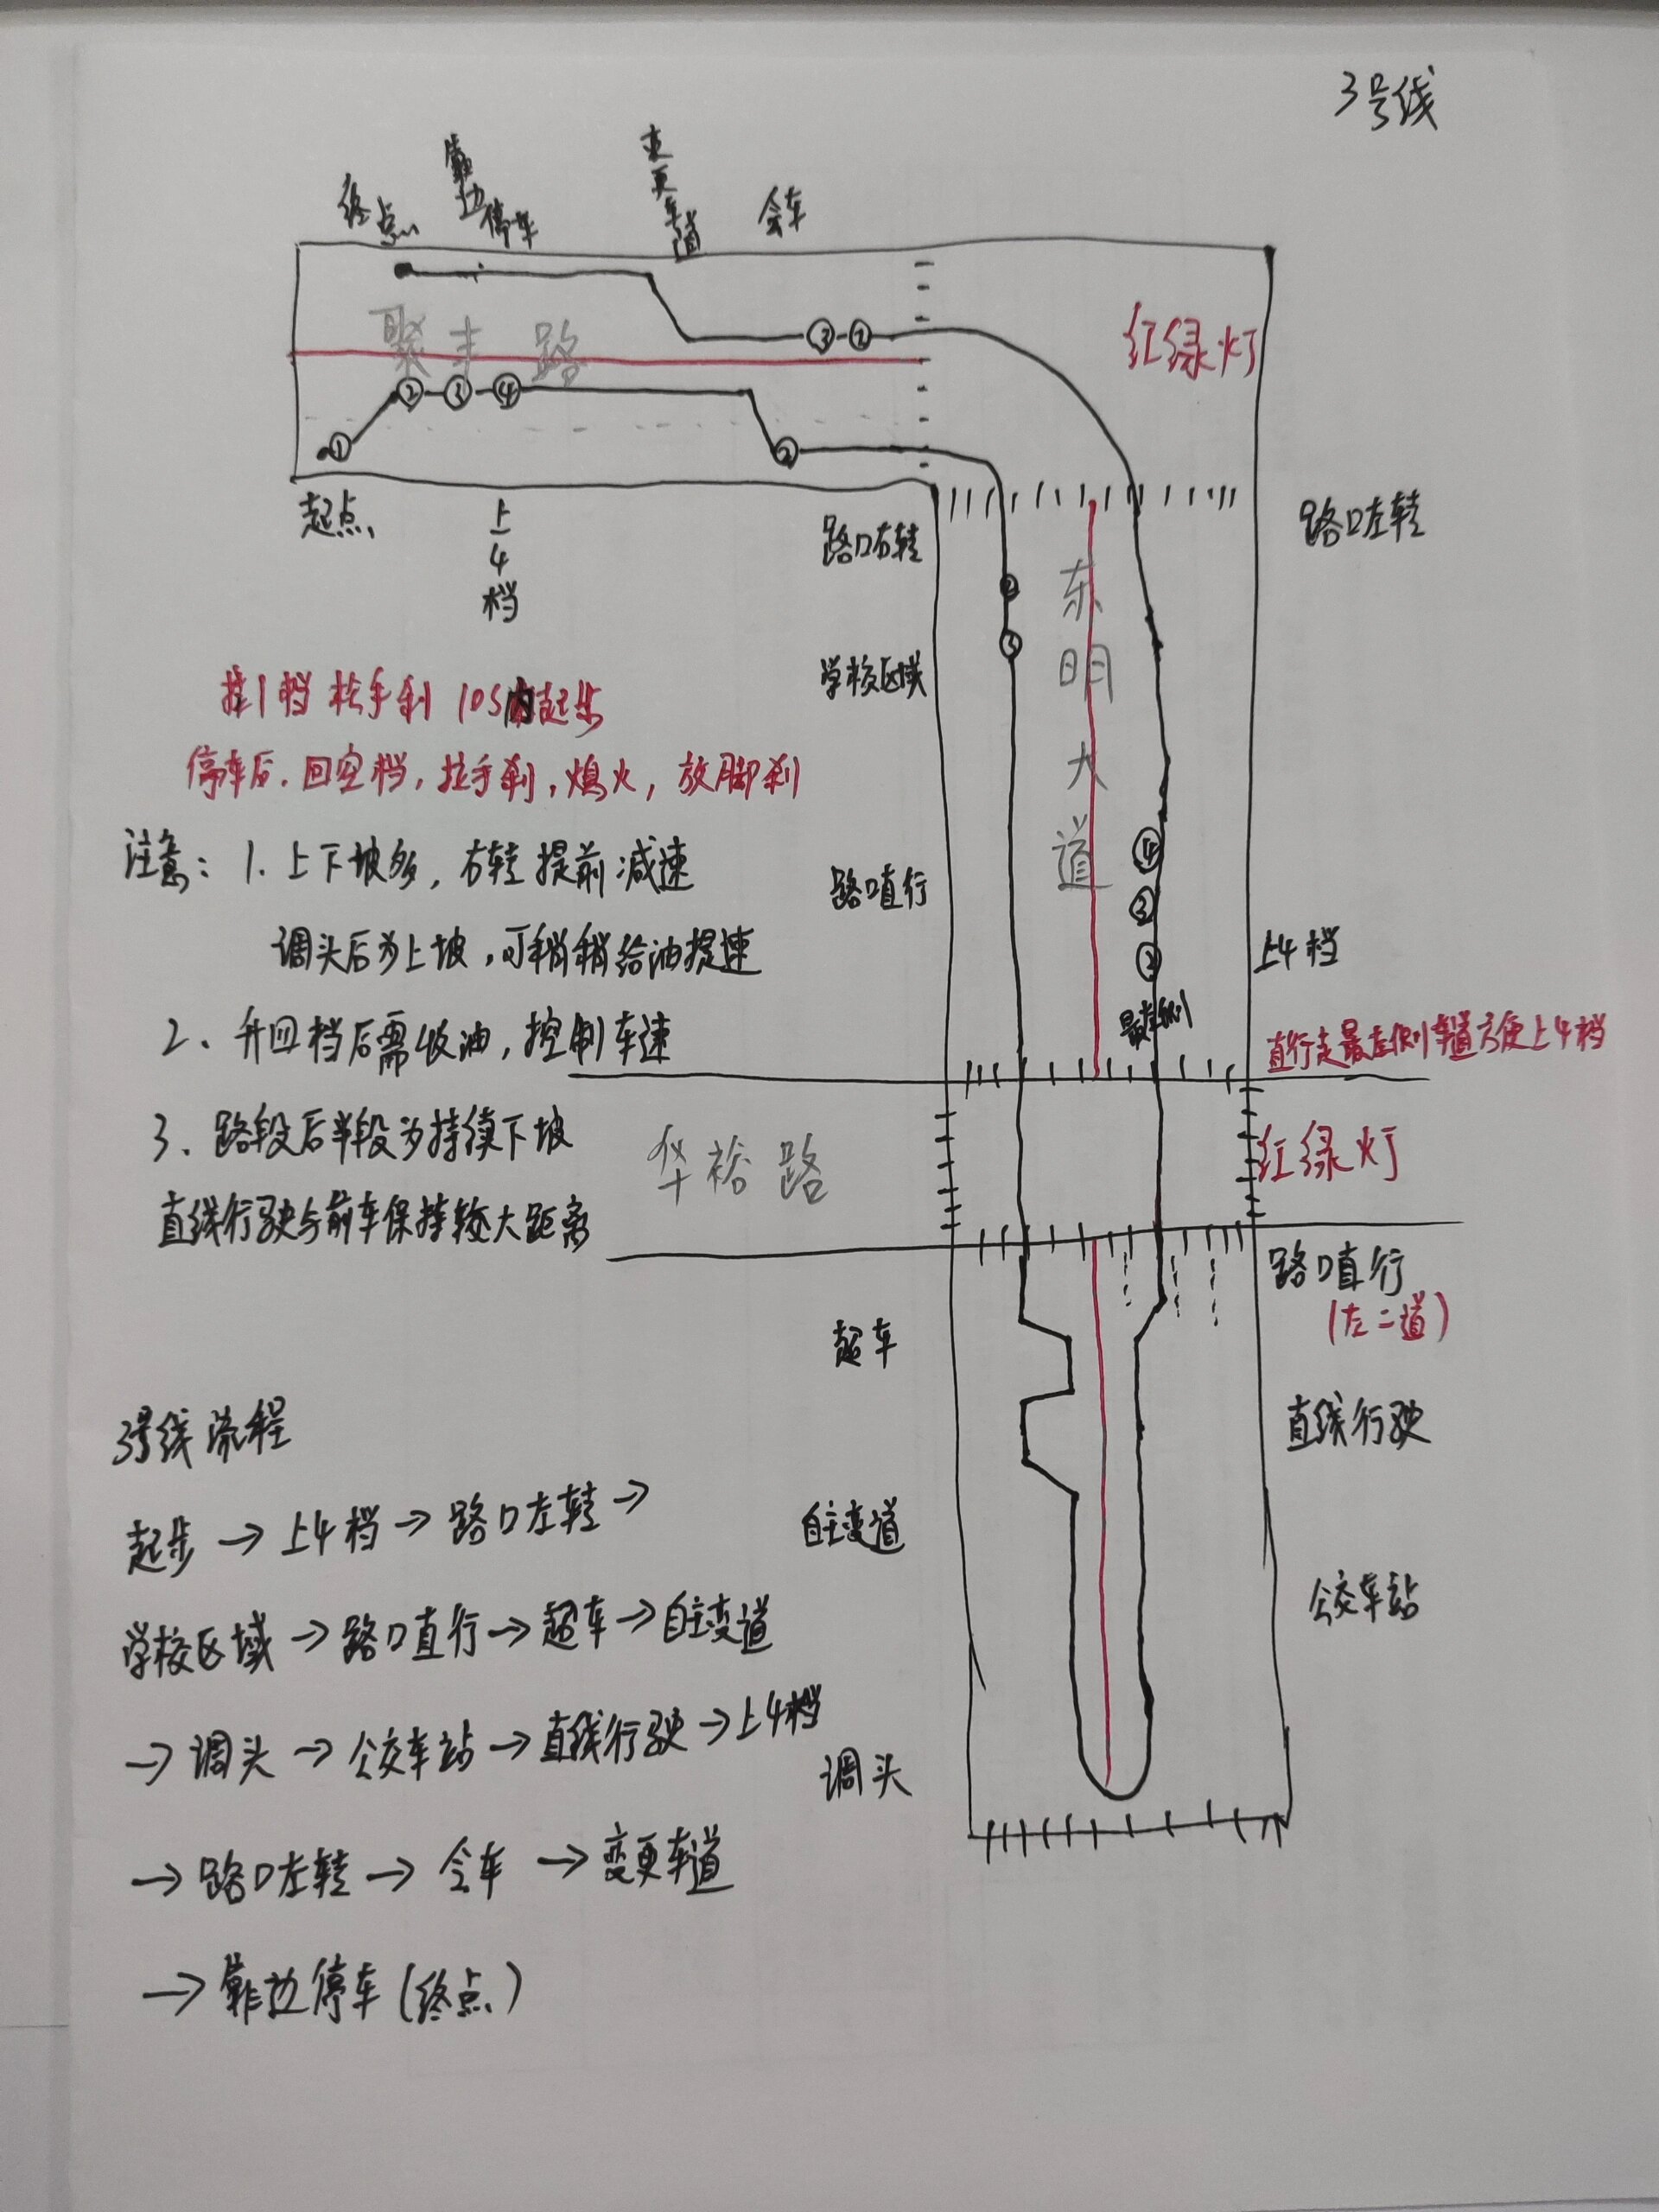 3号线
终点
靠边停车
变更车道
会车
聚丰路
红绿灯
② ③
② ③ ④
①
②
起点
上4档
路口右转
路口左转
东明大道
②
③
学校区域
挂1档 松手刹 10S内起步
停车后.回空档,拉手刹,熄火,放脚刹
注意:1.上下坡多,右转提前减速
调头后为上坡,可稍稍给油提速
2、升四档后需收油,控制车速
3.路段后半段为持续下坡
直线行驶与前车保持较大距离
路口直行
④
③
②
最左侧
上4档
直行走最左侧车道方便上4档
华裕路
红绿灯
路口直行
(左二道)
超车
直线行驶
自主变道
公交车站
调头
3号线流程
起步→上4档→路口左转→
学校区域→路口直行→超车→自主变道
→调头→公交车站→直线行驶→上4档
→路口左转→会车→变更车道
→靠边停车(终点)